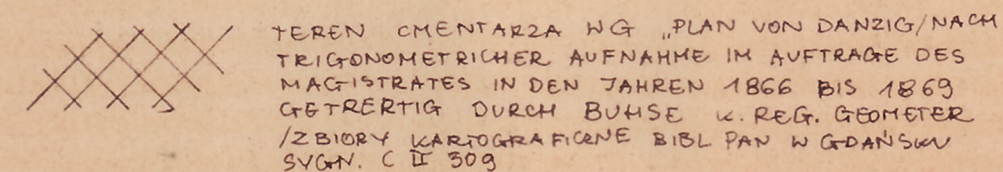 TEREN CMENTARZA WG „PLAN VON DANZIG/NACH
TRIGONOMETRICHER AUFNAHME IM AUFTRAGE DES
MAGISTRATES IN DEN JAHREN 1866 BIS 1869
GETRERTIG DURCH BUHSE K. REG. GEOMETER
/ZBIORY KARTOGRAFICZNE BIBL PAN W GDAŃSKU
SYGN. C II 309